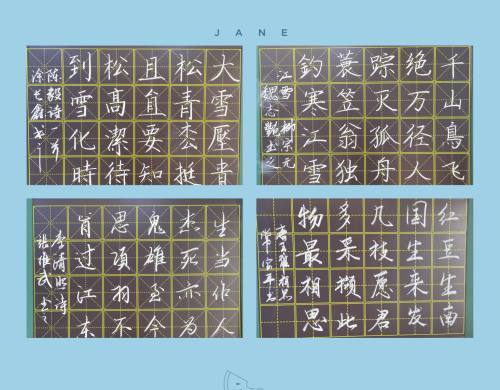 JANE
大雪壓青
松青枩挺
且直要知
松高潔待
到雪化時
陈毅诗一首
千山鳥飛
绝万径人
踪灭孤舟
蓑笠翁独
钓寒江雪
江雪 柳宗元
魏志艷书之
生当作人
杰死亦为
鬼雄至今
思項羽不
肯过江东
李清照诗
張維武书之
红豆生南
国生来发
几枝愿君
多采撷此
物最相思